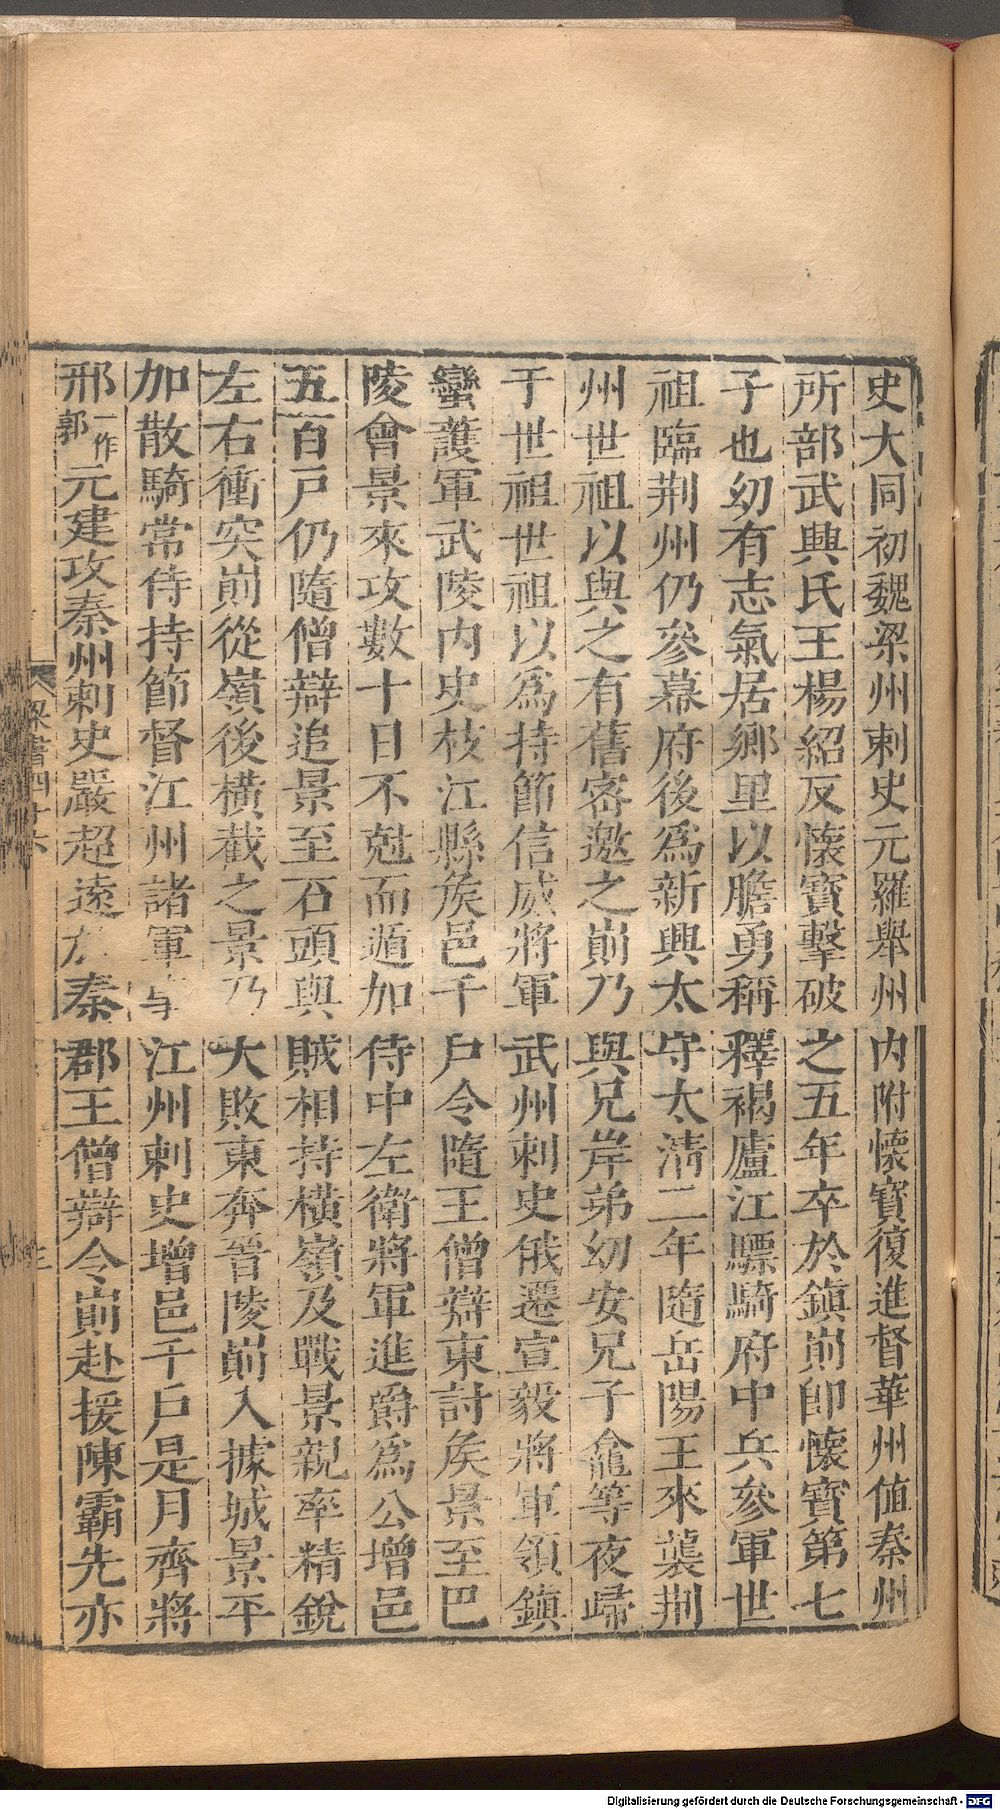 史大同初魏梁州刺史元羅舉州內附懷寶復進督華州値秦州
所部武興氐王楊紹反懷寶擊破之五年卒於鎮崱卽懷寶第七
子也幼有志氣居鄉里以膽勇稱釋褐廬江驃騎府中兵參軍世
祖臨荆州仍參幕府後爲新興太守太淸二年隨岳陽王來襲荆
州世祖以與之有舊密邀之崱乃與兄岸弟幼安兄子龕等夜歸
于世祖世祖以爲持節信威將軍武州刺史俄遷宣毅將軍領鎮
蠻護軍武陵內史枝江縣矦邑千戸令隨王僧辯東討矦景至巴
陵會景來攻數十日不尅而遁加侍中左衛將軍進爵爲公增邑
五百戸仍隨僧辯追景至石頭與賊相持橫嶺及戰景親率精銳
左右衝突崱從嶺後橫截之景乃大敗東奔晉陵崱入據城景平
加散騎常侍持節督江州諸軍事江州刺史增邑千戸是月齊將
郭一作邢元建攻秦州刺史嚴超遠於秦郡王僧辯令崱赴援陳霸先亦
梁書四十六
三
Digitalisierung gefördert durch die Deutsche Forschungsgemeinschaft - DFG